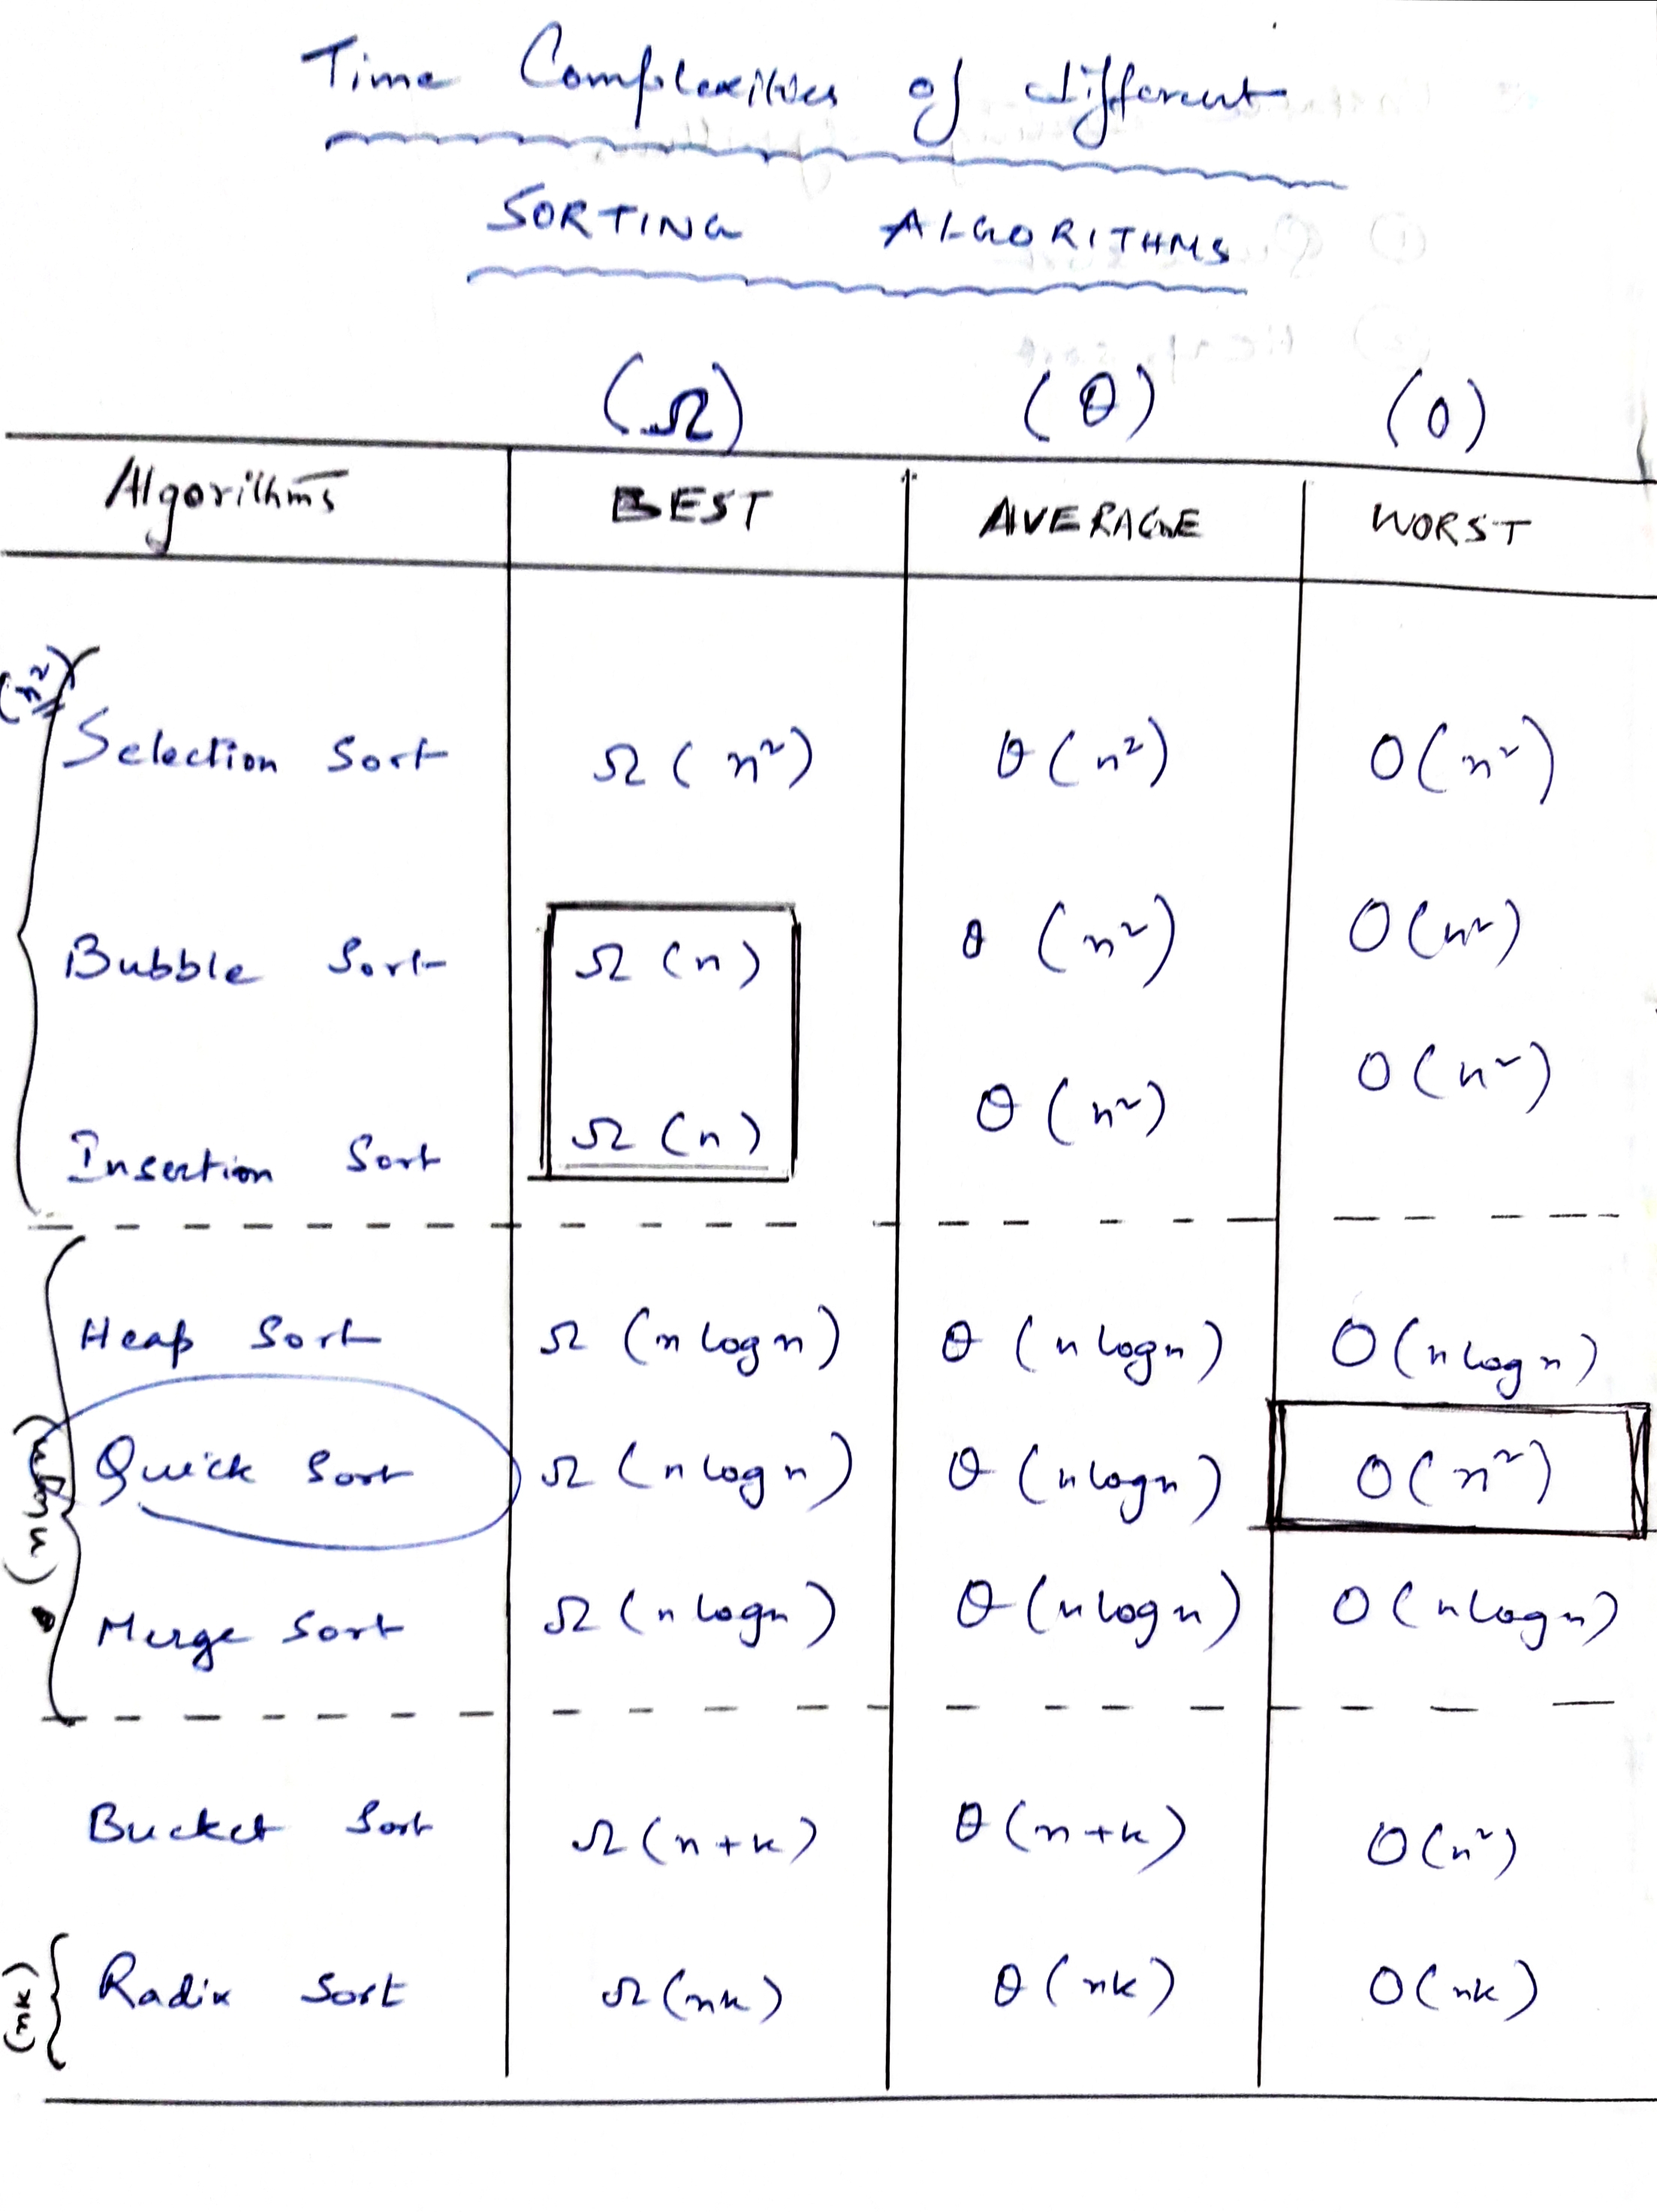 Time Complexities of different
SORTING ALGORITHMS
(Ω) (θ) (O)
Algorithms BEST AVERAGE WORST
(n²)
Selection Sort Ω(n²) θ(n²) O(n²)
Bubble Sort Ω(n) θ(n²) O(n²)
Insertion Sort Ω(n) θ(n²) O(n²)
Heap Sort Ω(n logn) θ(n logn) O(n logn)
Quick Sort Ω(n logn) θ(n logn) O(n²)
Merge Sort Ω(n logn) θ(n logn) O(n logn)
Bucket Sort Ω(n+k) θ(n+k) O(n²)
(nk) Radix Sort Ω(nk) θ(nk) O(nk)